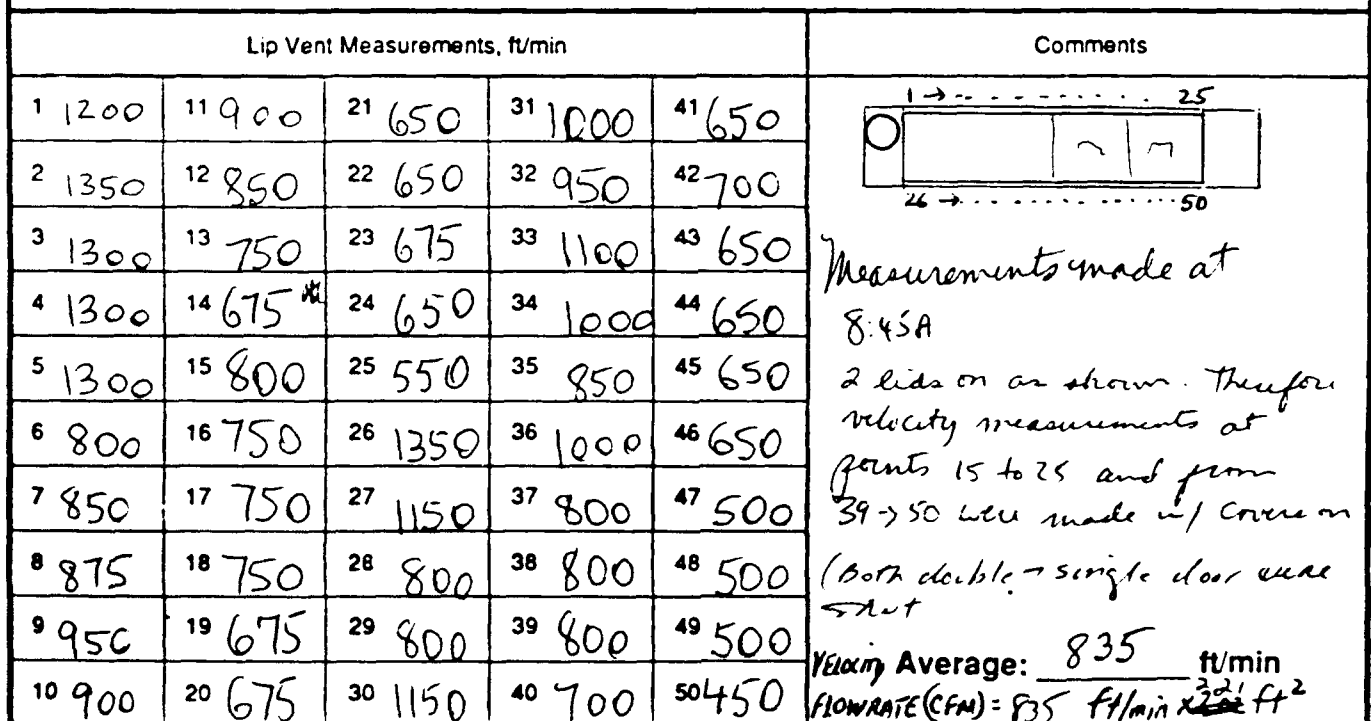 Lip Vent Measurements, ft/min Comments
1 1200 11 900 21 650 31 1000 41 650
2 1350 12 850 22 650 32 950 42 700
3 1300 13 750 23 675 33 1100 43 650
4 1300 14 675 24 650 34 1000 44 650
5 1300 15 800 25 550 35 850 45 650
6 800 16 750 26 1350 36 1000 46 650
7 850 17 750 27 1150 37 800 47 500
8 875 18 750 28 800 38 800 48 500
9 950 19 675 29 800 39 800 49 500
10 900 20 675 30 1150 40 700 50 450
1 → 25
26 → 50
Measurements made at
8:45A
2 lids on as shown. Therefore
velocity measurements at
points 15 to 25 and from
39→50 were made w/ covers on
(Both double single door were
shut
Velocity Average: 835 ft/min
FLOWRATE (CFM) = 835 ft/min x ft²